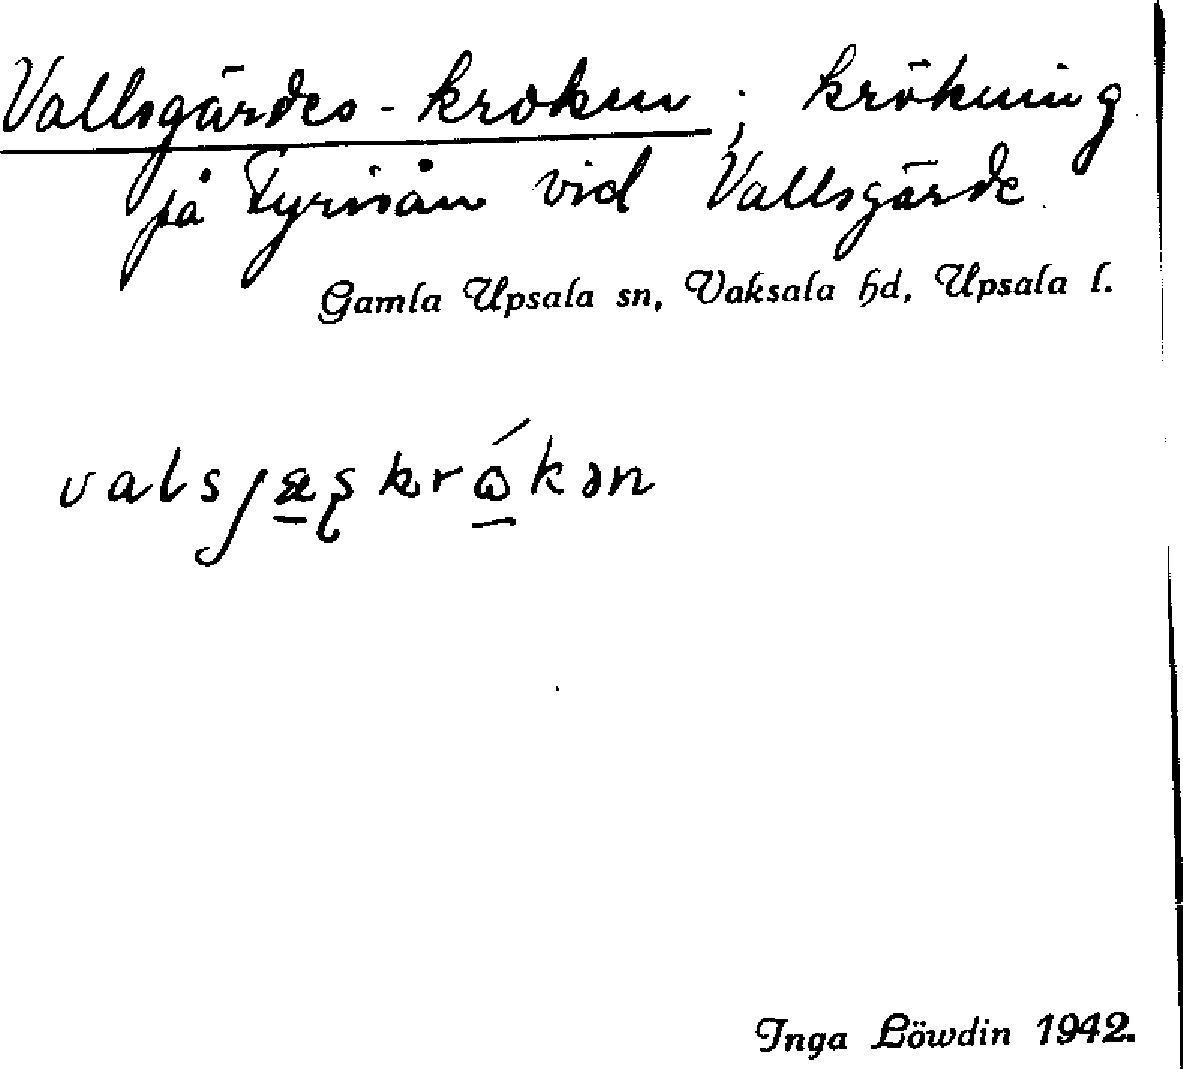 Vallsgärdes-kroken; krökning
på Fyrisån vid Vallsgärde.
Gamla Upsala sn, Vaksala hd, Upsala l.
valsjæ̲ʂkrɷ̲́kən
Inga Löwdin 1942.